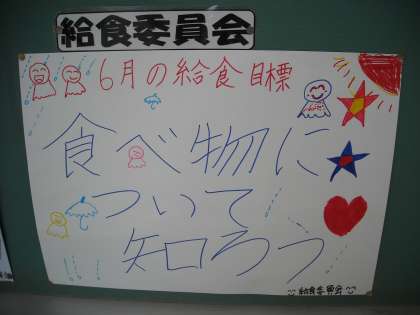 給食委員会
6月の給食目標
食べ物に
ついて
知ろう
給食委員会